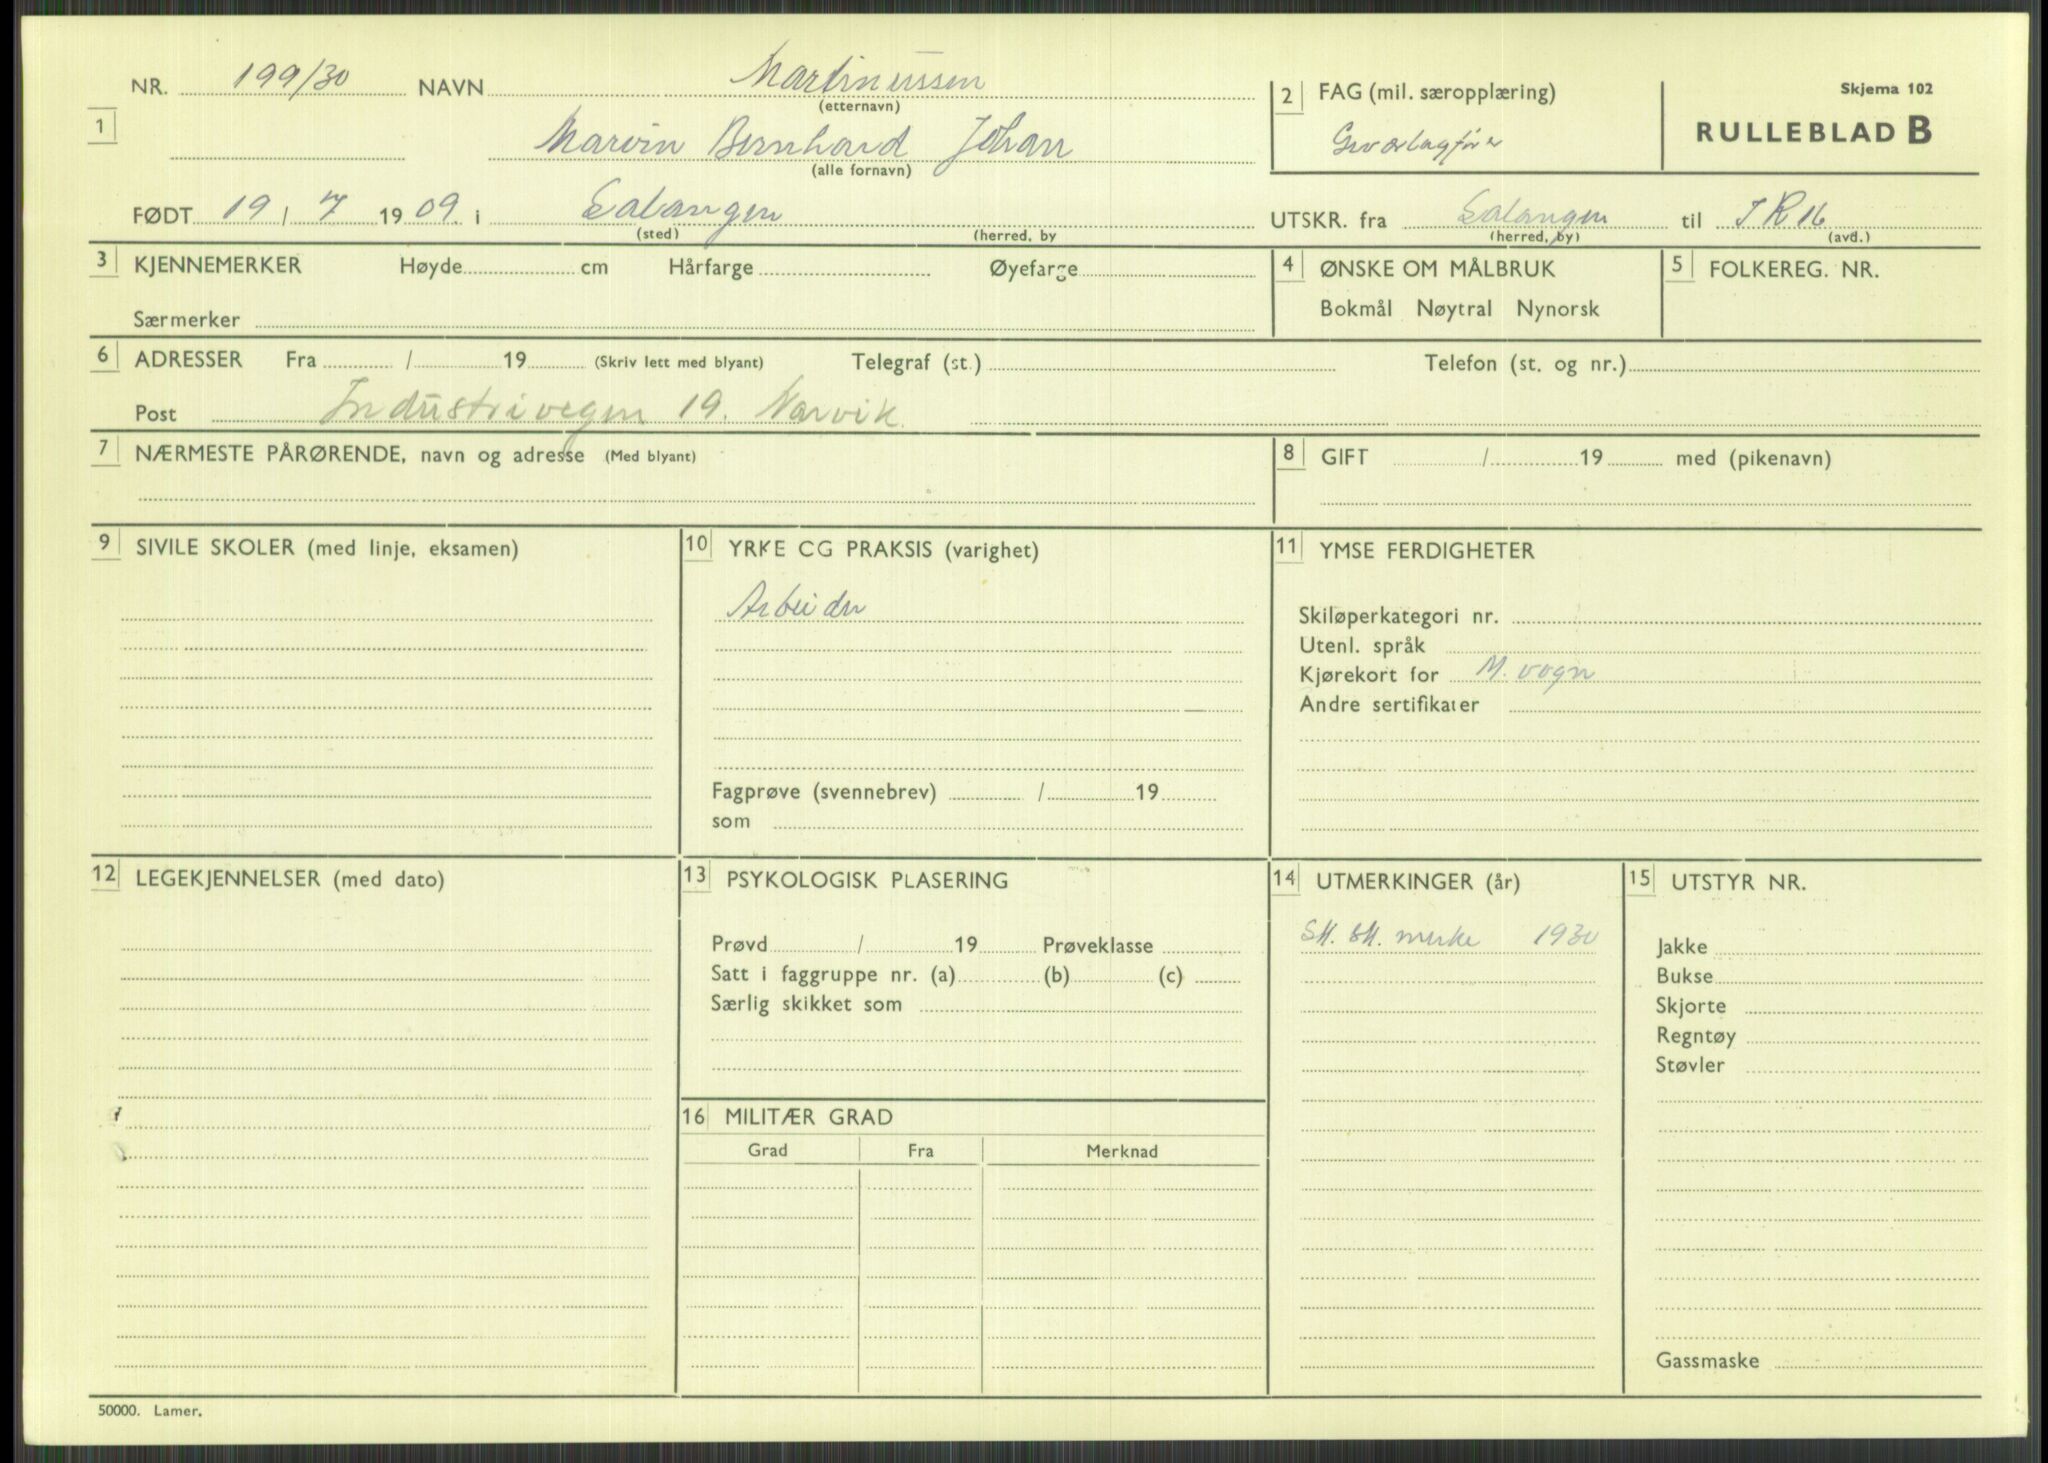 NR. 199/30 NAVN Martinussen
(etternavn)
1
Marvin Bernhard Johan
(alle fornavn)
2 FAG (mil. særopplæring)
Skjema 102
RULLEBLAD B
FØDT 19 / 7 1909. i Salangen
(sted) (herred, by
UTSKR. fra Salangen til IR16
(herred, by) (avd.)
3 KJENNEMERKER Høyde cm Hårfarge Øyefarge
Særmerker
4 ØNSKE OM MÅLBRUK
Bokmål Nøytral Nynorsk
5 FOLKEREG. NR.
6 ADRESSER Fra / 19 (Skriv lett med blyant) Telegraf (st.) Telefon (st. og nr.)
Post Industrivegen 19. Narvik
7 NÆRMESTE PÅRØRENDE, navn og adresse (Med blyant)
8 GIFT / 19 med (pikenavn)
9 SIVILE SKOLER (med linje, eksamen)
10 YRKE CG PRAKSIS (varighet)
Arbeider
Fagprøve (svennebrev) / 19
som
11 YMSE FERDIGHETER
Skiløperkategori nr.
Utenl. språk
Kjørekort for M. vogn
Andre sertifikater
12 LEGEKJENNELSER (med dato)
13 PSYKOLOGISK PLASERING
Prøvd / 19 Prøveklasse
Satt i faggruppe nr. (a) (b) (c)
Særlig skikket som
14 UTMERKINGER (år)
merke 1930
15 UTSTYR NR.
Jakke
Bukse
Skjorte
Regntøy
Støvler
Gassmaske
16 MILITÆR GRAD
Grad Fra Merknad
50000. Lamer.